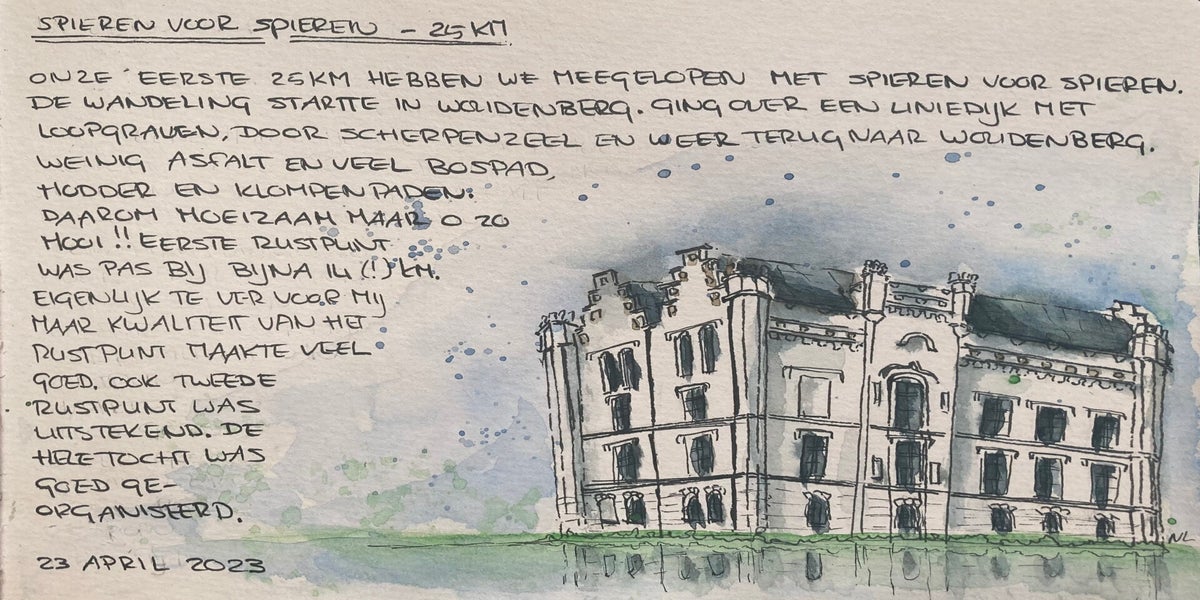 SPIEREN VOOR SPIEREN - 25 KM
ONZE EERSTE 25 KM HEBBEN WE MEEGELOPEN MET SPIEREN VOOR SPIEREN.
DE WANDELING STARTTE IN WOUDENBERG. GING OVER EEN LINIEDIJK MET
LOOPGRAVEN, DOOR SCHERPENZEEL EN WEER TERUG NAAR WOUDENBERG.
WEINIG ASFALT EN VEEL BOSPAD,
MODDER EN KLOMPENPADEN:
DAAROM MOEIZAAM MAAR O ZO
MOOI!! EERSTE RUSTPUNT
WAS PAS BIJ BIJNA 14 (!) KM.
EIGENLIJK TE VER VOOR MIJ
MAAR KWALITEIT VAN HET
RUSTPUNT MAAKTE VEEL
GOED. OOK TWEEDE
RUSTPUNT WAS
UITSTEKEND. DE
HELE TOCHT WAS
GOED GE-
ORGANISEERD.
23 APRIL 2023
NL